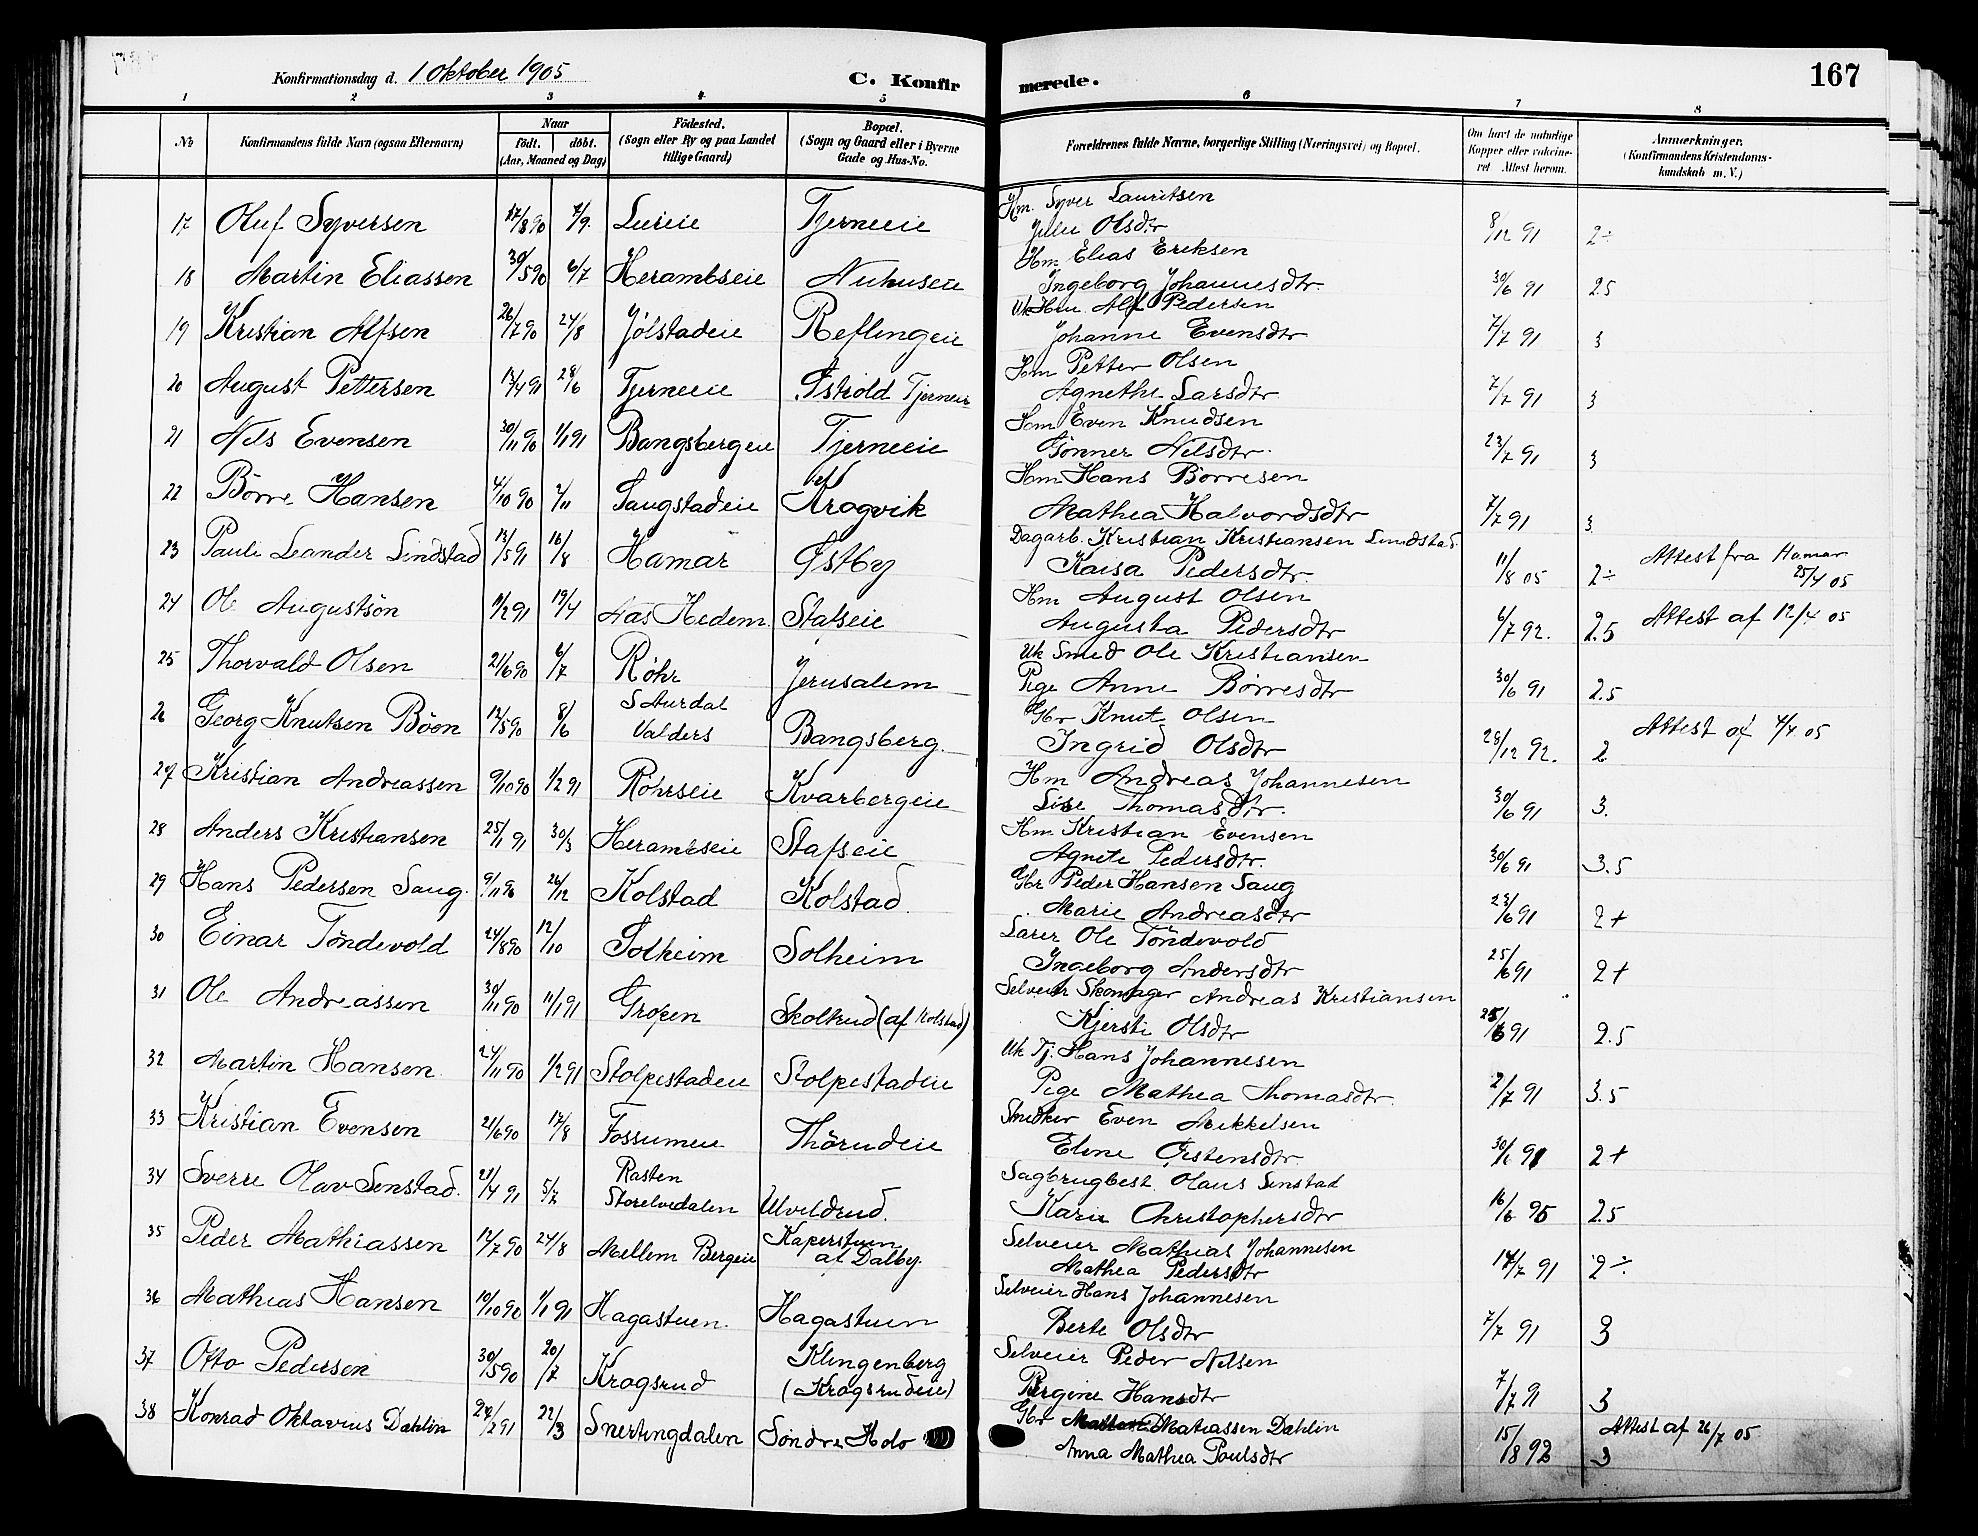 Konfirmationsdag d. 1 Oktober 1905 C. Konfirmerede. 167
1 2 3 4 5 6 7 8
No
Konfirmandens fulde Navn (ogsaa Efternavn)
Naar
født. døbt.
(Aar, Maaned og Dag)
Fødested.
(Sogn eller By og paa Landet
tillige Gaard)
Bopæl.
(Sogn og Gaard eller i Byerne
Gade og Hus-No.
Forældrenes fulde Navne, borgerlige Stilling (Næringsvei) og Bopæl.
Om havt de naturlige
Kopper eller vakcine-
ret Attest herom.
Anmærkninger.
(Konfirmandens Kristendoms-
kundskab m. V.)
Hm. Syver Lauritsen
17 Oluf Syversen 17/8 90 7/9. Lureie Tjerneeie Olsdtr 8/12 91 2÷
Hm Elias Eriksen
18 Martin Eliassen 30/5 90 6/7 Herambseie Nuhuseie Ingeborg Johannesdtr. 30/6 91 2.5
Uk Hm. Alf Pedersen
19 Kristian Alfsen 26/7 90 24/8 Jølstadeie Reflingeie Johanne Evensdtr 7/7 91 3
Hm Petter Olsen
20 August Pettersen 13/4 91 28/6 Tjerneeie Østvold Tjerneie Agnethe Larsdtr 7/7 91 3
Hm Even Knudsen
21 Nils Evensen 30/11 90 1/1 91 Bangsbergeie Tjerneeie Gönner Nilsdtr. 23/7 91 3
Hm Hans Börresen
22 Börre Hansen 4/10 90 2/11 Saugstadeie Krogvik Mathea Halvordsdtr 7/7 91 3
Dagarb. Kristian Kristiansen Lindstad.
23 Pauli Leander Lindstad 13/5 91 16/8 Hamar Østby Kaisa Pedersdtr. 11/8 05 2÷ Attest fra Hamar 25/4 05
Hm August Olsen
24 Ole Augustsön 11/2 91 19/4 Nas Hedem. Stafseie Augusta Pedersdtr 6/7 92. 2.5 Attest af 12/4 05
Uk Smed Ole Kristiansen
25 Thorvald Olsen 21/6 90 6/7 Røhr Jerusalem Pige Anne Børresdtr 30/6 91 2.5
S Aurdal Gbr Knut Olsen
26 Georg Knutsen Böon 13/5 90 8/6 Valders Bangsberg. Ingrid Olsdtr 28/12 92. 2 Attest af 4/4 05
Hm Andreas Johannesen
27 Kristian Andreassen 9/10 90 1/2 91 Röhrseie Kvarbergeie Lise Thomasdtr. 30/6 91 3.
Hm. Kristian Evensen
28 Anders Kristiansen 25/1 91 30/3 Herambseie Stafseie Agnete Pedersdtr. 30/6 91 3.5
Gbr Peder Hansen Saug
29 Hans Pedersen Saug. 9/11 90 26/12 Kolstad Kolstad. Marie Andreasdtr 23/6 91 2+
Lærer Ole Töndevold
30 Einar Töndevold 24/8 90 12/10 Solheim Solheim Ingeborg Andersdtr 25/6 91 2+
Selveier Skomager Andreas Kristiansen
31 Ole Andreassen 30/11 90 11/1 91 Gropen Skoltrud (af Kolstad) Kjersti Olsdtr 25/6 91 2.5
Uk Tj. Hans Johannesen
32 Martin Hansen 24/11 90 1/2 91 Stolpestadeie Stolpestadeie Pige Mathea Thomasdtr. 2/7 91 3.5
Snedker Even Mikkelsen
33 Kristian Evensen 21/6 90 17/8 Fossumeie Thörudeie Eline Østensdtr. 30/6 91 2+
Rasten Sagbrugbest. Olaus Senstad
34 Sverre Olav Senstad. 21/4 91 5/7 Storelvedalen Ulveldrud. Karin Christophersdtr 16/6 95 2.5
Kaperstuen Selveier Mathias Johannesen
35 Peder Mathiassen 12/7 90 24/8 Mellem Bergeie at Dalby. Mathea Pedersdtr 14/7 91 2÷
Selveier Hans Johannesen
36 Mathias Hansen 10/10 90 1/1 91 Hagastuen. Hagastuen Berte Olsdtr 7/7 91 3
Klingenberg Selveier Peder Nilsen
37 Otto Pedersen 30/5 90 20/7 Krogsrud (Krogsrudeie) Birgine Hansdtr 7/7 91 3
Gbr Matiassen Dahlin
38 Konrad Oktavius Dahlin 24/2 91 22/3 Snertingdalen Söndre Holo Anna Mathea Poulsdtr 15/8 92 3 Attest af 26/7 05